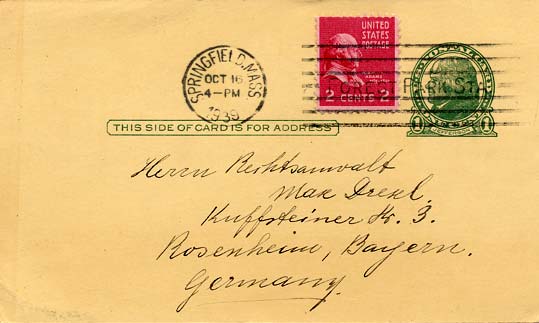 SPRINGFIELD, MASS
OCT 16
4-PM
1939
UNITED
STATES
POSTAGE
JOHN
ADAMS
2 CENTS 2
FOREST PARK STA.
THIS SIDE OF CARD IS FOR ADDRESS
JEFFERSON
1 1
Herrn Rechtsanwalt
Max Drexl,
Kuffsteiner Str. 3.
Rosenheim, Bayern.
Germany.